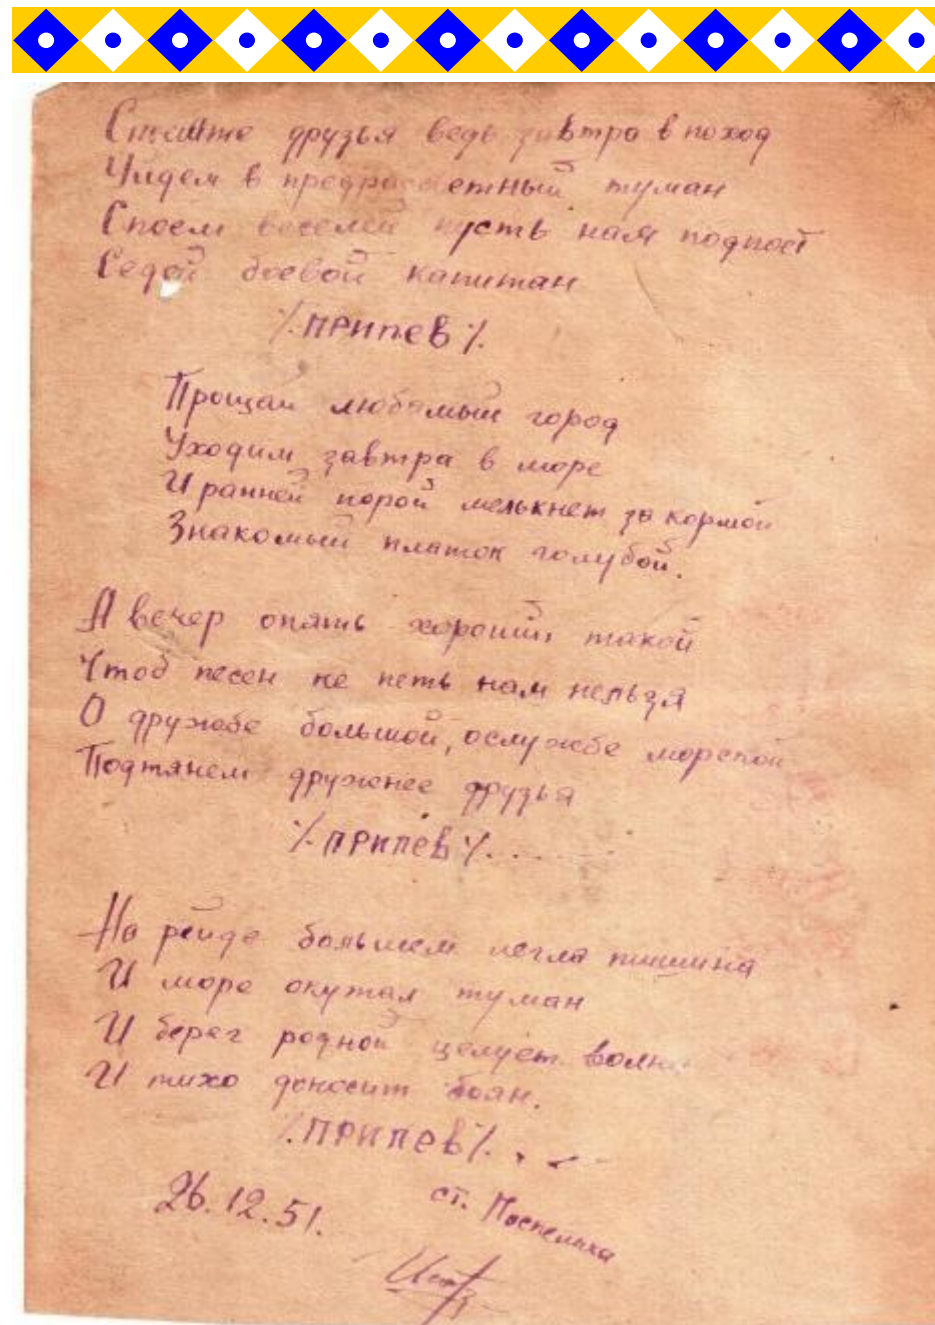 друзья ведь завтра в поход
Уйдем в предрассветный туман
Споем веселей пусть нам подпоет
Седой боевой капитан
/.ПРИПЕВ/.
Прощай любимый город
Уходим завтра в море
И ранней порой мелькнет за кормой
Знакомый платок голубой.
А вечер опять хороший такой
Чтоб песен не петь нам нельзя
О дружбе большой, ослужбе морской
Подтянем дружнее друзья
/.ПРИПЕВ/.....
На рейде большем легла тишина
И море окутал туман
И берег родной целует
И тихо доносит боян.
/.ПРИПЕВ/...
26.12.51.
ст. Поспелиха